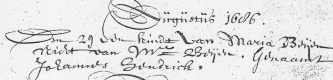 Augustus 1686.
Den 29 den kindt van Maria Beijen
nicht van Mr Beijen. Genaamt
Johannes Hendrick.